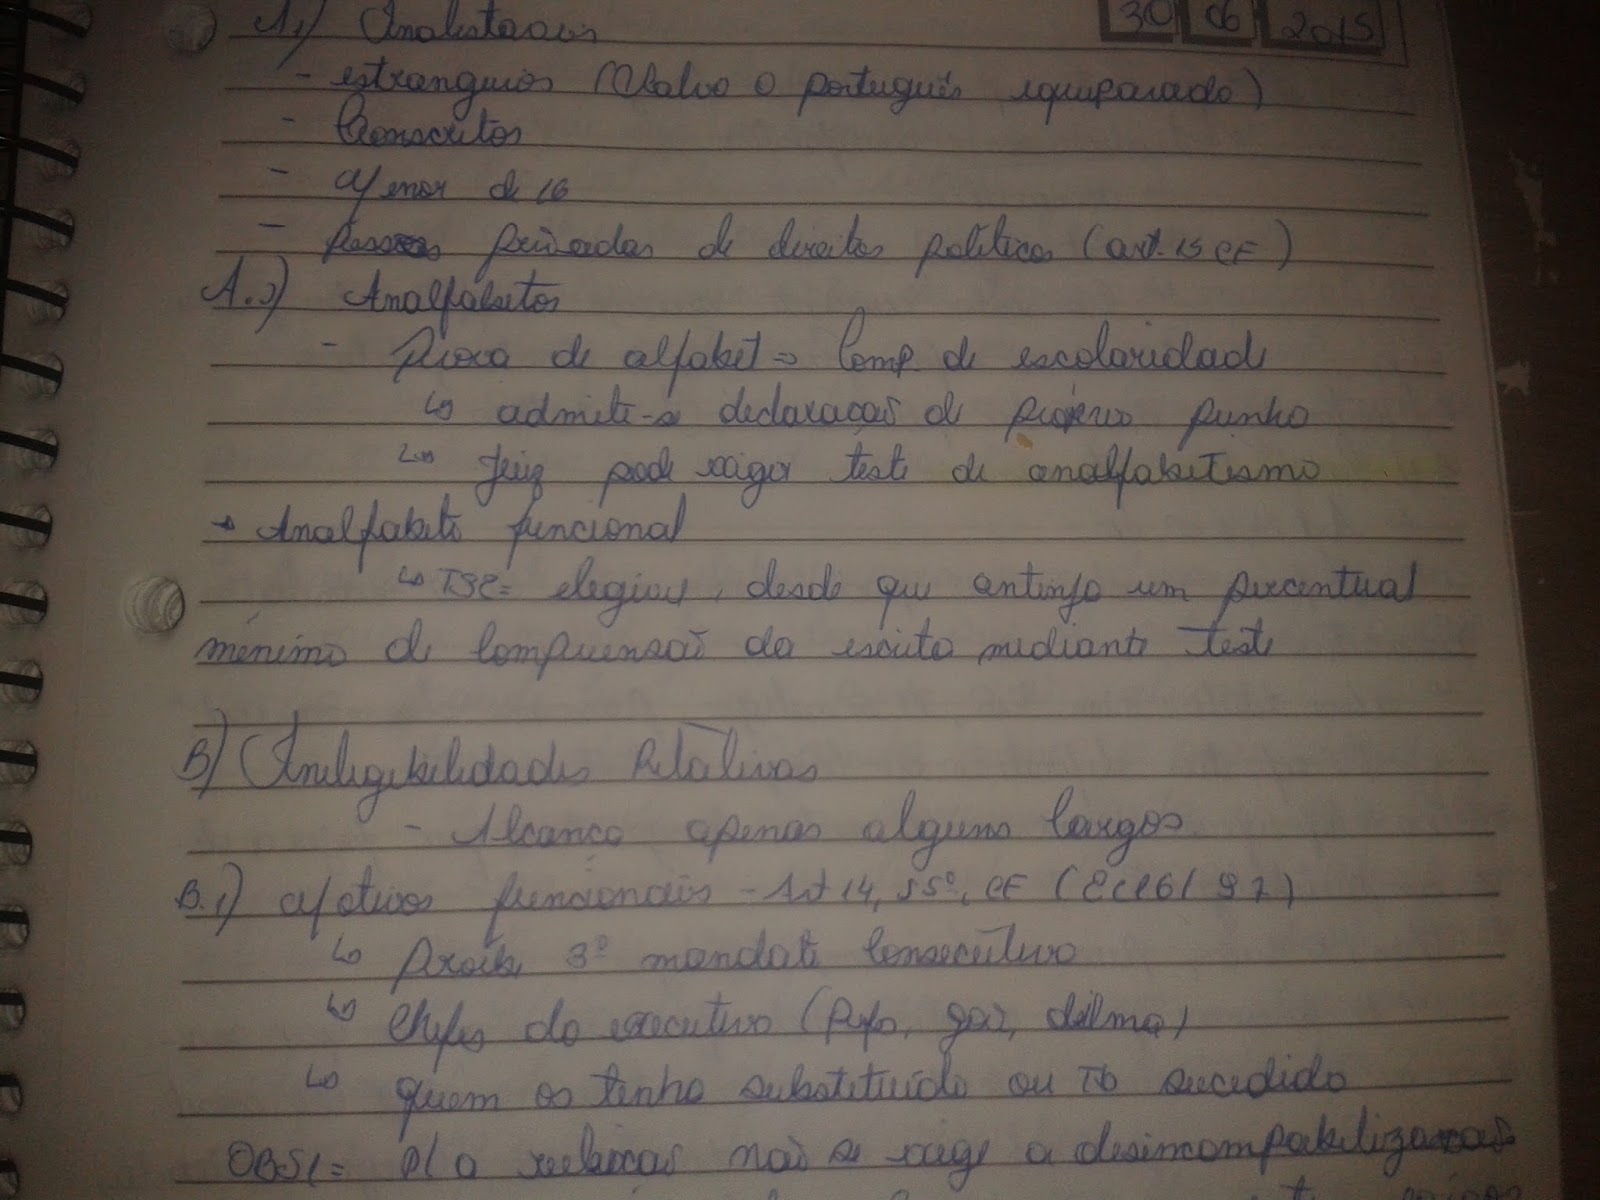 30 06 2015
A.1) Inalistáveis
- estrangeiros (Salvo o português equiparado)
- Conscritos
- Menor de 16
- pessoas privadas de direitos políticos (art. 15 CF)
A.2) Analfabetos
- Prova de alfabet => Comp. de escolaridade
↳ admite-se declaração de próprio punho
↳ Juiz pode exigir teste de analfabetismo
→ Analfabeto funcional
↳ TSE = elegível, desde que antinja um percentual
mínimo de compreensão da escrita mediante teste
B) Inelegibilidades Relativas
- Alcança apenas alguns cargos
B.1) Motivos funcionais - Art 14, §5º, CF (EC 16/97)
↳ Proíbe 3º mandato consecutivo
↳ Chefes do executivo (Pref, gov, dilma)
↳ quem os tenha substituído ou Tb sucedido
OBS1= P/ a reeleição não se exige a desincompatibilização